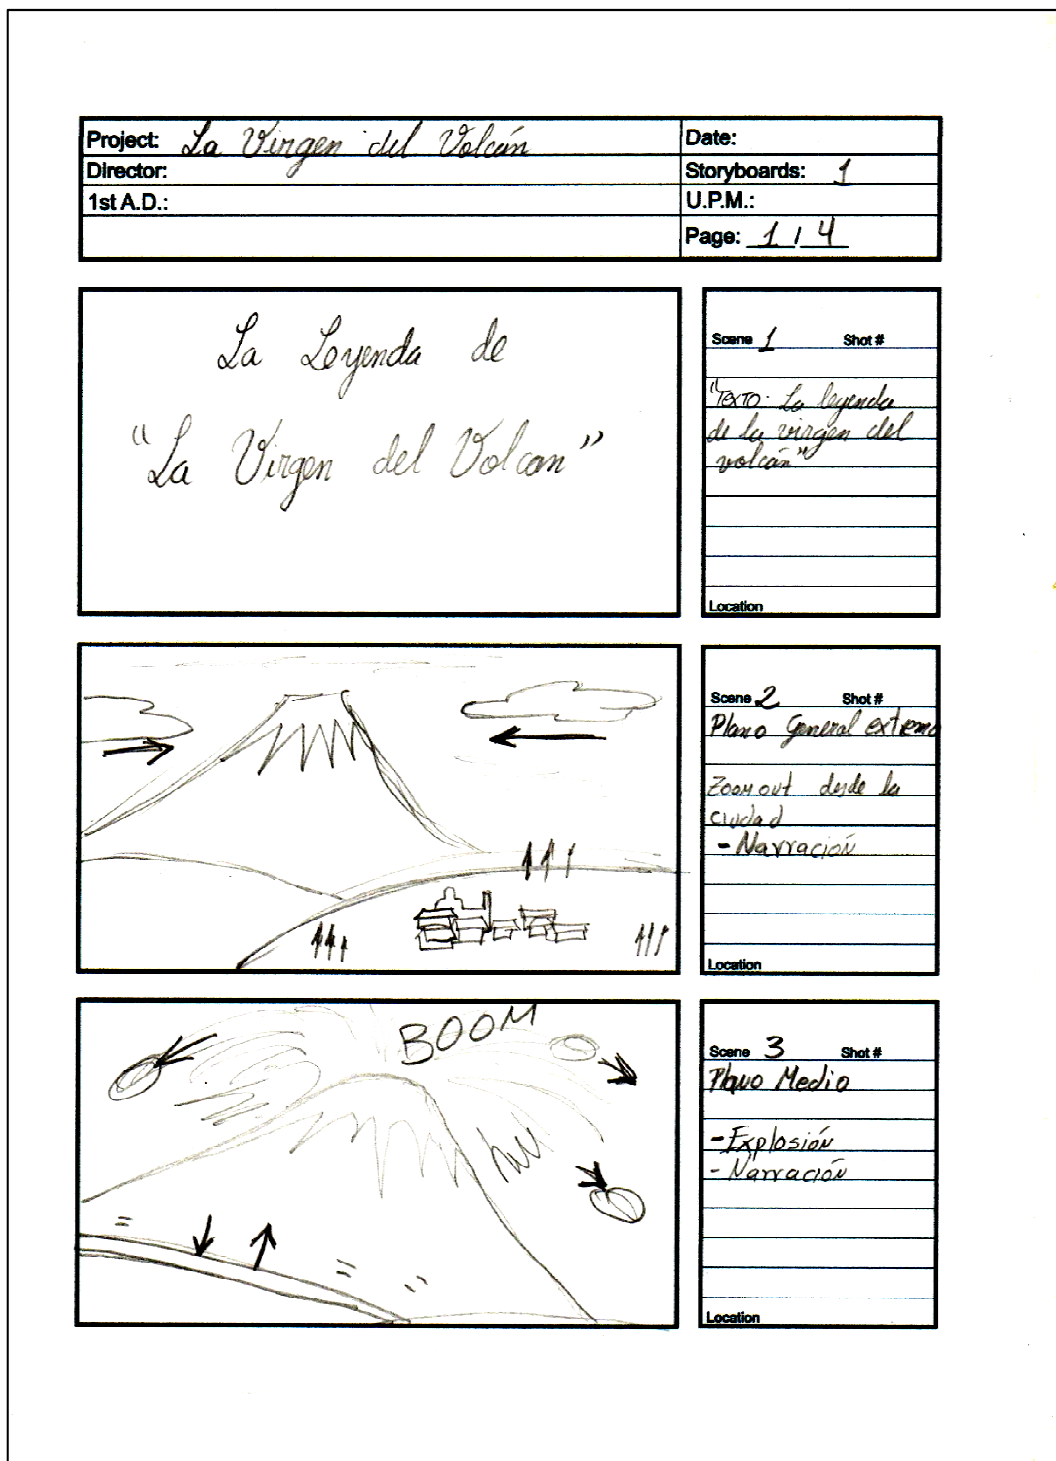 Project: La Virgen del Volcán
Date:
Director:
Storyboards: 1
1st A.D.:
U.P.M.:
Page: 1 / 4
La Leyenda de
“La Virgen del Volcan”
Scene 1 Shot #
"TEXTO: La leyenda
de la virgen del
volcán"
Location
Scene 2 Shot #
Plano General extremo
Zoom out desde la
ciudad
- Narración
Location
BOOM
Scene 3 Shot #
Plano Medio
- Explosión
- Narración
Location